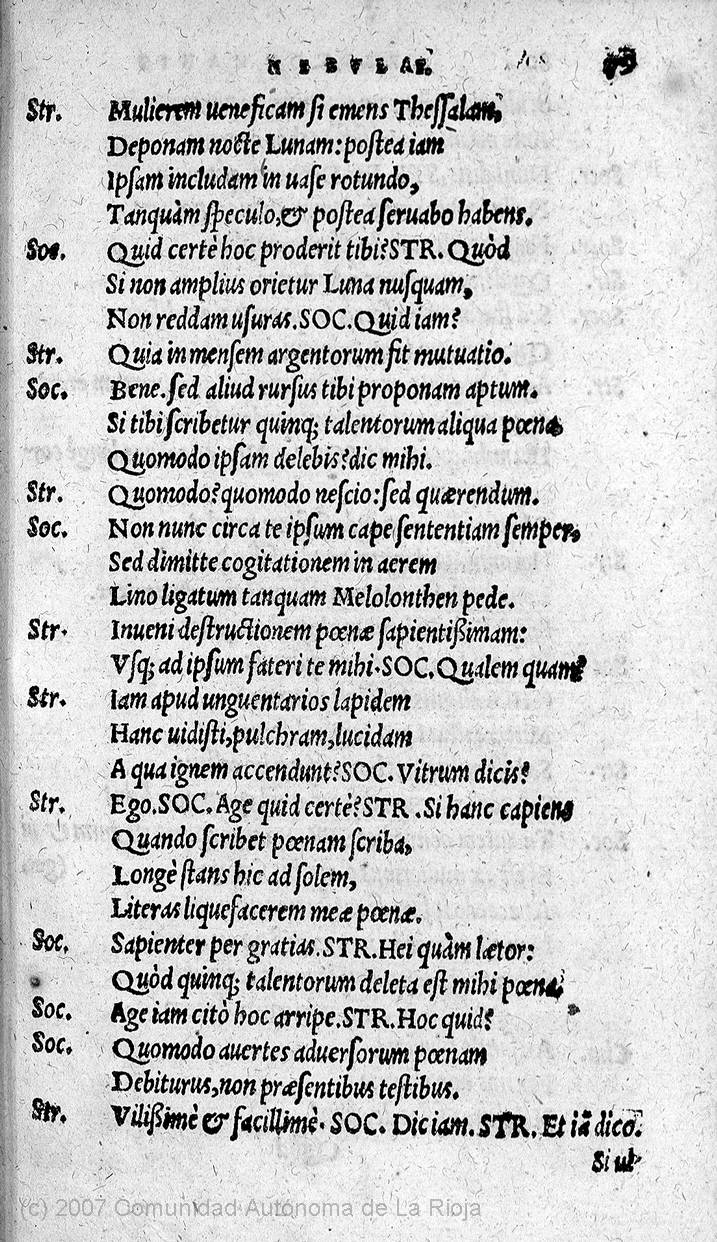 NEBVLAE.
Str. Mulierem ueneficam si emens Thessalam,
Deponam nocte Lunam: postea iam
Ipsam includam in uase rotundo,
Tanquàm speculo,& postea seruabo habens.
Soc. Quid certè hoc proderit tibi? STR. Quòd
Si non amplius orietur Luna nusquam,
Non reddam usuras. SOC. Quid iam?
Str. Quia in mensem argentorum fit mutuatio.
Soc. Bene. sed aliud rursus tibi proponam aptum.
Si tibi scribetur quinq; talentorum aliqua pœna
Quomodo ipsam delebis? dic mihi.
Str. Quomodo? quomodo nescio: sed quærendum.
Soc. Non nunc circa te ipsum cape sententiam semper,
Sed dimitte cogitationem in aerem
Lino ligatum tanquam Melolonthen pede.
Str. Inueni destructionem pœnæ sapientißimam:
Vsq; ad ipsum fateri te mihi. SOC. Qualem quam?
Str. Iam apud unguentarios lapidem
Hanc uidisti, pulchram, lucidam
A qua ignem accendunt? SOC. Vitrum dicis?
Str. Ego. SOC. Age quid certè? STR. Si hanc capiens
Quando scribet pœnam scriba,
Longè stans hic ad solem,
Literas liquefacerem meæ pœnæ.
Soc. Sapienter per gratias. STR. Hei quàm lætor:
Quòd quinq; talentorum deleta est mihi pœna.
Soc. Age iam citò hoc arripe. STR. Hoc quid?
Soc. Quomodo auertes aduersorum pœnam
Debiturus, non præsentibus testibus.
Str. Vilißimè & facillimè. SOC. Dic iam. STR. Et iā dico.
Si ul
(c) 2007 Comunidad Autónoma de La Rioja